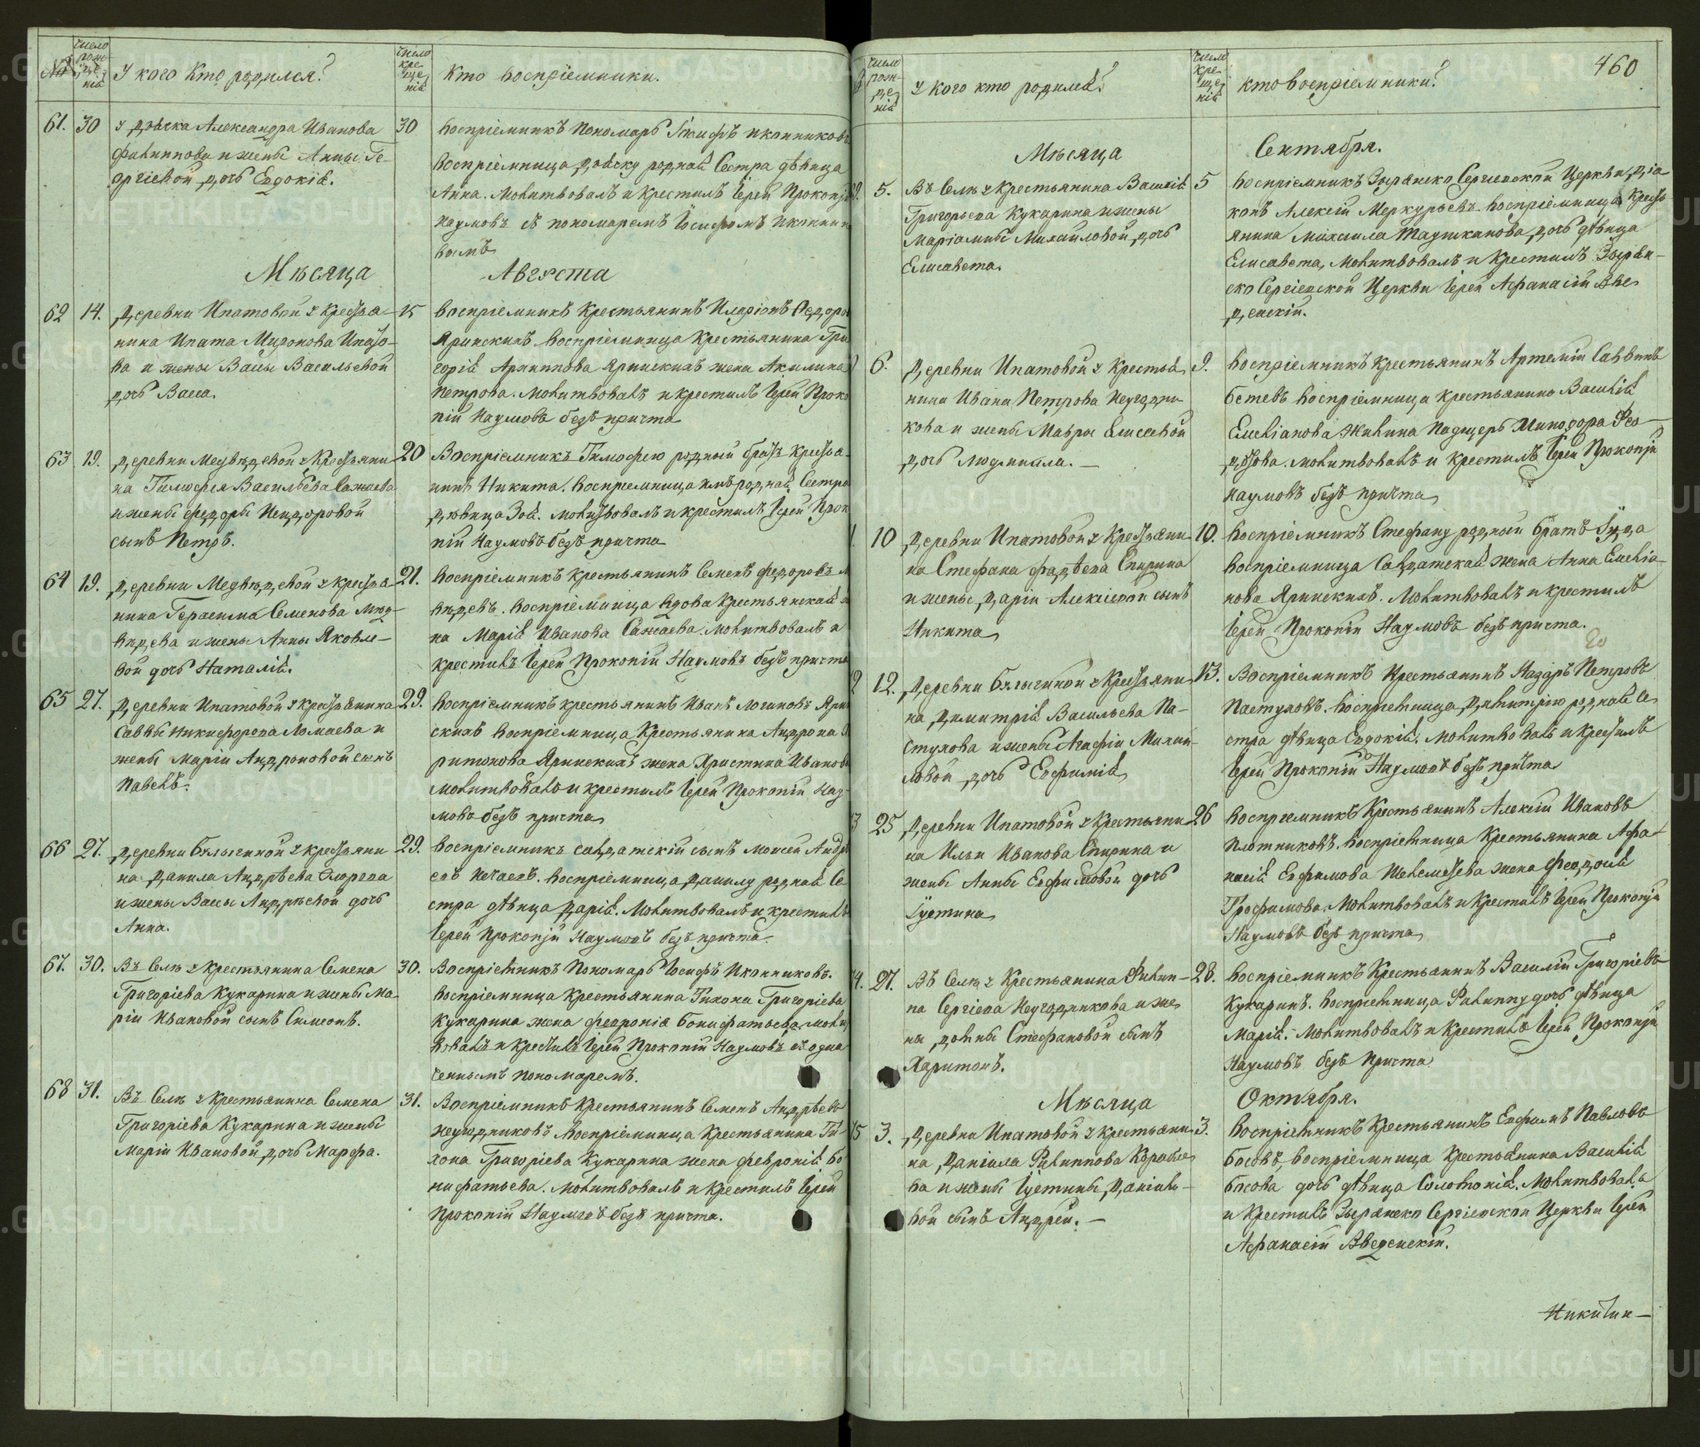 №
число рожденія
У кого Кто родился?
число крещенія
Кто воспріемники.
61.
30
У дьячка Александра Иванова
Филиппова и жены Анны Ге-
оргіевой дочь Евдокія.
30
Воспріемникъ Пономарь Іосифъ Иконниковъ
воспріемница дьячку родная Сестра дѣвица
Анна. Молитвовалъ и Крестилъ Іерей Прокопій
Наумовъ съ пономаремъ Іосифомъ Иконни-
вымъ
Мѣсяца
Августа
62
14.
Деревни Ипатовой у Крестья-
нина Ипата Миронова Ипато-
ва и жены Вассы Васильевой
дочь Васса.
15
Воспріемникъ Крестьянинъ Иларіонъ Федоро
Яринскихъ воспріемница Крестьянина Гри
горія Архиппова Яринскихъ жена Акилина
Петрова. Молитвовалъ и крестилъ Іерей Проко
пій Наумовъ безъ причта
63
19.
Деревни Медвѣдевой у Крестьяни
на Тимофея Васильева Сажаева
и жены Федоры Исидоровой
сынъ Петръ.
20
Воспріемникъ Тимофею родный братъ Кресть-
нинъ Никита. воспріемница имъ родная Сестра
дѣвица Зоя. Молитвовалъ и крестилъ Іерей Проко
пій Наумовъ безъ причта
64
19.
Деревни Медвѣдевой у Крестья-
нина Герасима Семенова Мед-
вѣдева и жены Анны Яковле-
вой дочь Наталія.
21.
Воспріемникъ крестьянинъ Семенъ Федоровъ М
вѣдевъ. воспріемница вдова Крестьянская
на Марія Иванова Сажаева. Молитвовалъ и
крестилъ Іерей Прокопій Наумовъ безъ причта
65
27.
Деревни Ипатовой у крестьянина
Саввы Никифорова Ломаева и
жены Маріи Андроновой сынъ
Павелъ.
29.
Воспріемникъ крестьянинъ Иванъ Логиновъ Ярин
скихъ воспріемница Крестьянина Андрона
ритонова Яринскихъ жена Христина Иванова
молитвовалъ и крестилъ Іерей Прокопій Нау
мовъ безъ причта
66
27.
Деревни Бялыгиной у Крестьяни
на Данила Андрѣева
и жены Вассы Андрѣевой дочь
Анна.
29.
воспріемникъ салдатскій сынъ Моисей Андр
евъ Нечаевъ. воспріемница Данилу родная Се
стра дѣвица Дарія. Молитвовалъ и крестилъ
Іерей Прокопій Наумовъ безъ причта.
67.
30.
Въ Селѣ у Крестьянина Семена
Григоріева Кукарина и жены Ма-
ріи Ивановой сынъ Симеонъ.
30.
Воспріемникъ Пономарь Іосифъ Иконниковъ.
воспріемница Крестьянина Тихона Григоріева
Кукарина жена Февронія Бонифатьева. молит
вовалъ и Крестилъ Іерей Прокопій Наумовъ съ озна
ченнымъ пономаремъ.
68
31.
Въ Селѣ у Крестьянина Семена
Григоріева Кукарина и жены
Маріи Ивановой дочь Марфа.
31.
Воспріемникъ Крестьянинъ Семенъ Андрѣевъ
Неугодниковъ воспріемница Крестьянина Ти-
хона Григоріева Кукарина жена Февронія Бо
нифатьева. Молитвовалъ и Крестилъ Іерей
Прокопій Наумовъ безъ причта.
460
число рожденія
У кого кто родился?
число крещенія
кто воспріемники?
Мѣсяца
Сентября.
5.
Въ Селѣ у Крестьянина Василія
Григорьева Кукарина и жены
Маріамны Михайловой дочь
Елисавета.
5
воспріемникъ Зырянско Сергіевской Церкви діа
конъ Алексій Меркурьевъ. воспріемница Кресть
янина Михаила Таушканова дочь дѣвица
Елисавета, Молитвовалъ и Крестилъ Зырян-
ско Сергіевской Церкви Іерей Афанасій Вве
денскій.
6.
Деревни Ипатовой у Крестья
нина Ивана Петрова Неугодни-
кова и жены Мавры Елисеевой
дочь Людмила.
9.
воспріемникъ крестьянинъ Артемій Саввинъ
воспріемница крестьянина Василія
Емельянова Жилина падщерь Минодора Фео-
дотова. Молитвовалъ и Крестилъ Іерей Прокопій
Наумовъ безъ причта
10
Деревни Ипатовой у Крестьяни
на Стефана Фадѣева Спирина
и жены Даріи Алексіевой сынъ
Никита
10.
воспріемникъ Стефану родный братъ Іуда
воспріемница Салдатская жена Анна Емелья-
нова Яринскихъ. Молитвовалъ и крестилъ
Іерей Прокопій Наумовъ безъ причта.
12.
Деревни Бялыгиной у Крестьяни
на Димитрія Васильева Па-
стухова и жены Агафіи Михаи-
ловой дочь Евфимія
13.
Воспріемникъ Крестьянинъ Назаръ Петровъ
Пастуховъ. воспріемница Димитрію родная Се
стра дѣвица Евдокія. Молитвовалъ и Крестилъ
Іерей Прокопій Наумовъ безъ причта
25
Деревни Ипатовой у Крестьяни
на Ильи Иванова Спирина и
жены Анны Евфимовой дочь
Іустина
26
воспріемникъ Крестьянинъ Алексій Ивановъ
Плотниковъ. воспріемница Крестьянина Афа-
насія Евфимова жена Феодосія
Трофимова. Молитвовалъ и Крестилъ Іерей Прокопій
Наумовъ безъ причта
27.
Въ Селѣ у Крестьянина Филип-
па Сергіева Неугодникова и же
ны Домны Стефановой сынъ
Харитонъ.
28.
воспріемникъ Крестьянинъ Василій Григоріевъ
Кукаринъ. воспріемница Филиппу дочь дѣвица
Марія. Молитвовалъ и Крестилъ Іерей Прокопій
Наумовъ безъ Причта
Мѣсяца
Октября.
3.
Деревни Ипатовой у Крестьяни
на Даніила Филиппова Королё
ва и жены Іустины Даніило-
вой сынъ Андрей.
3.
воспріемникъ Крестьянинъ Евфимъ Павловъ
Босовъ, воспріемница Крестьянина Василія
Босова дочь дѣвица Соломонія. Молитвовалъ
и Крестилъ Зырянско Сергіевской Церкви Іерей
Афанасій Введенскій.
Никитин
METRIKI.GASO-URAL.RU